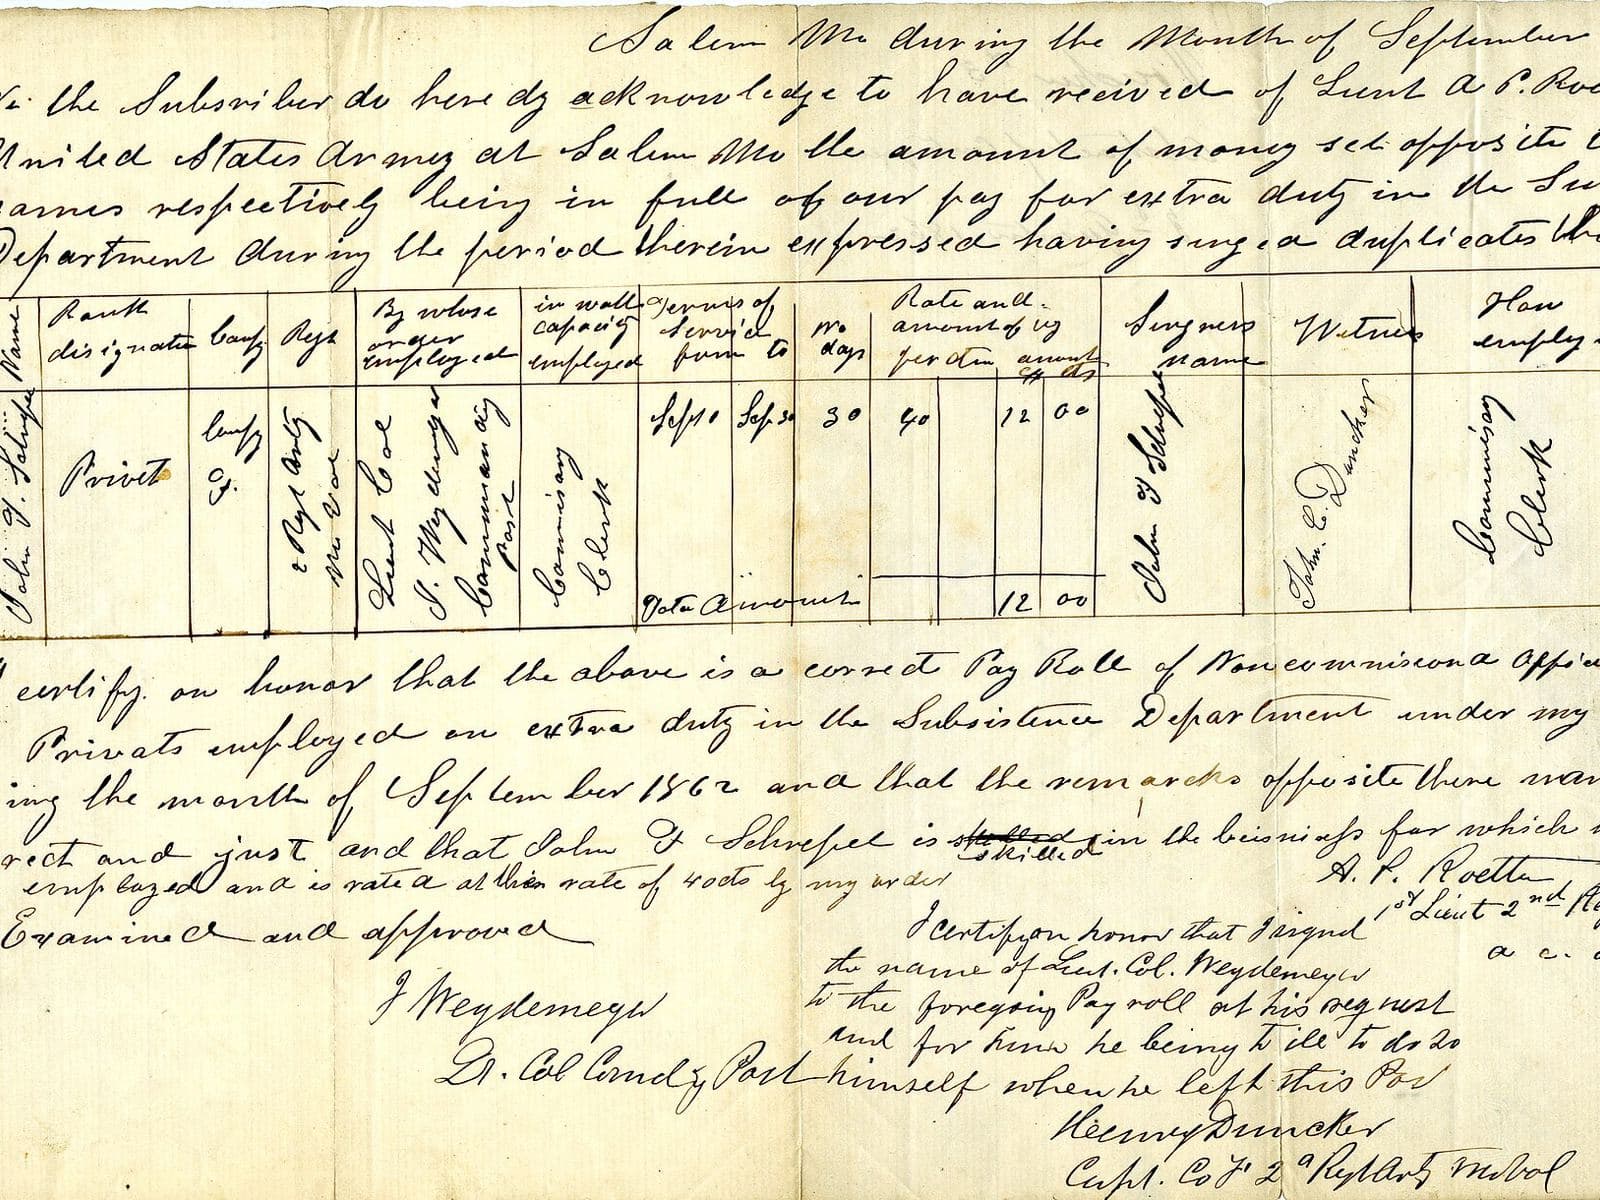 Salem Mo during the Month of September
the Subsriber do here dy acknowledge to have reeived of Lieut A P. Roe
United States Army at Salem Mo the amount of money set opposite
names respectively being in full of our pay for extra duty in the Su
Department during the period therein expressed having singed duplicates
Name
Rank disignatie
Comp
Regt
By whose order employed
in wath capacity employed
Terms of Service from to
No days
Rate and amount of pay per diem amont $ cts
Singners name
Witness
How employ
John F. Schrepel
Privet
Comp F.
2 Regt Arty Mo Vol
Lieut Col J. Weydemeyer Commanding Post
Commisary Clerk
Sept 1
Sep 30
30
40
12 00
John F Schrepel
John. C. Duncker
Commisary Clerk
Tota Amount
12 00
certify on honor that the above is a correct Pay Roll of Noncommisiond Offic
Privats employed on extra duty in the Subsistence Department under my
ing the month of September 1862 and that the remarcks opposite there nam
rect and just and that John F Schrepel is skilled skilled in the beisniss for which
employed and is rated at their rate of 40cts by my order
A. P. Roetter
1st Lieut 2nd
a c.
Examined and approved
J Weydemeyer
Lt. Col Comdg Post
I certify on honor that I signed
the name of Lieut. Col. Weydemeyer
to the foregoing Pay roll at his request
and for him he being to ill to do so
himself when he left this Post
Heenry Duncker
Capt. Co F. 2d Regt Arty Mo Vol